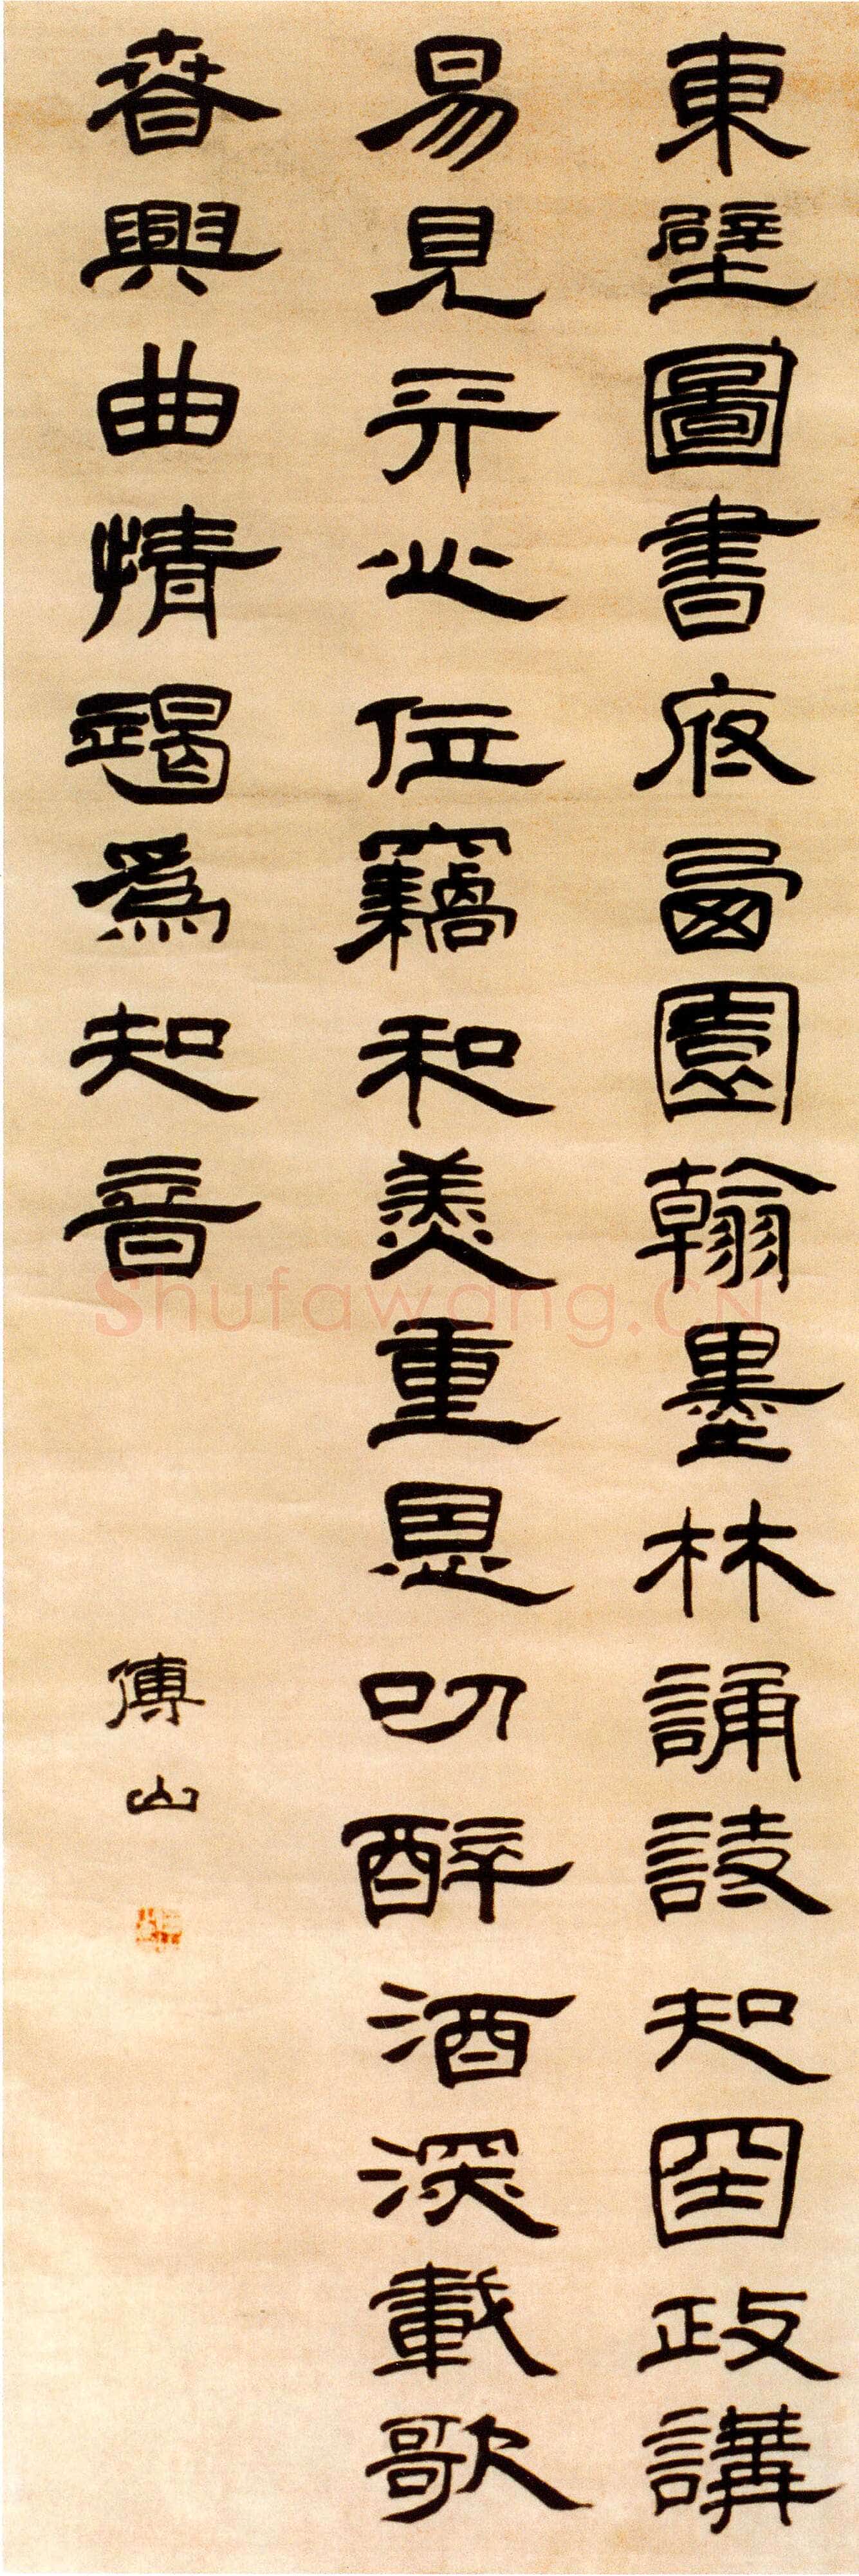 東壁圖書府西園翰墨林誦詩知國政講
易見天心位竊和羹重恩叨醉酒深載歌
春興曲情竭為知音
傅山
Shufawang.CN